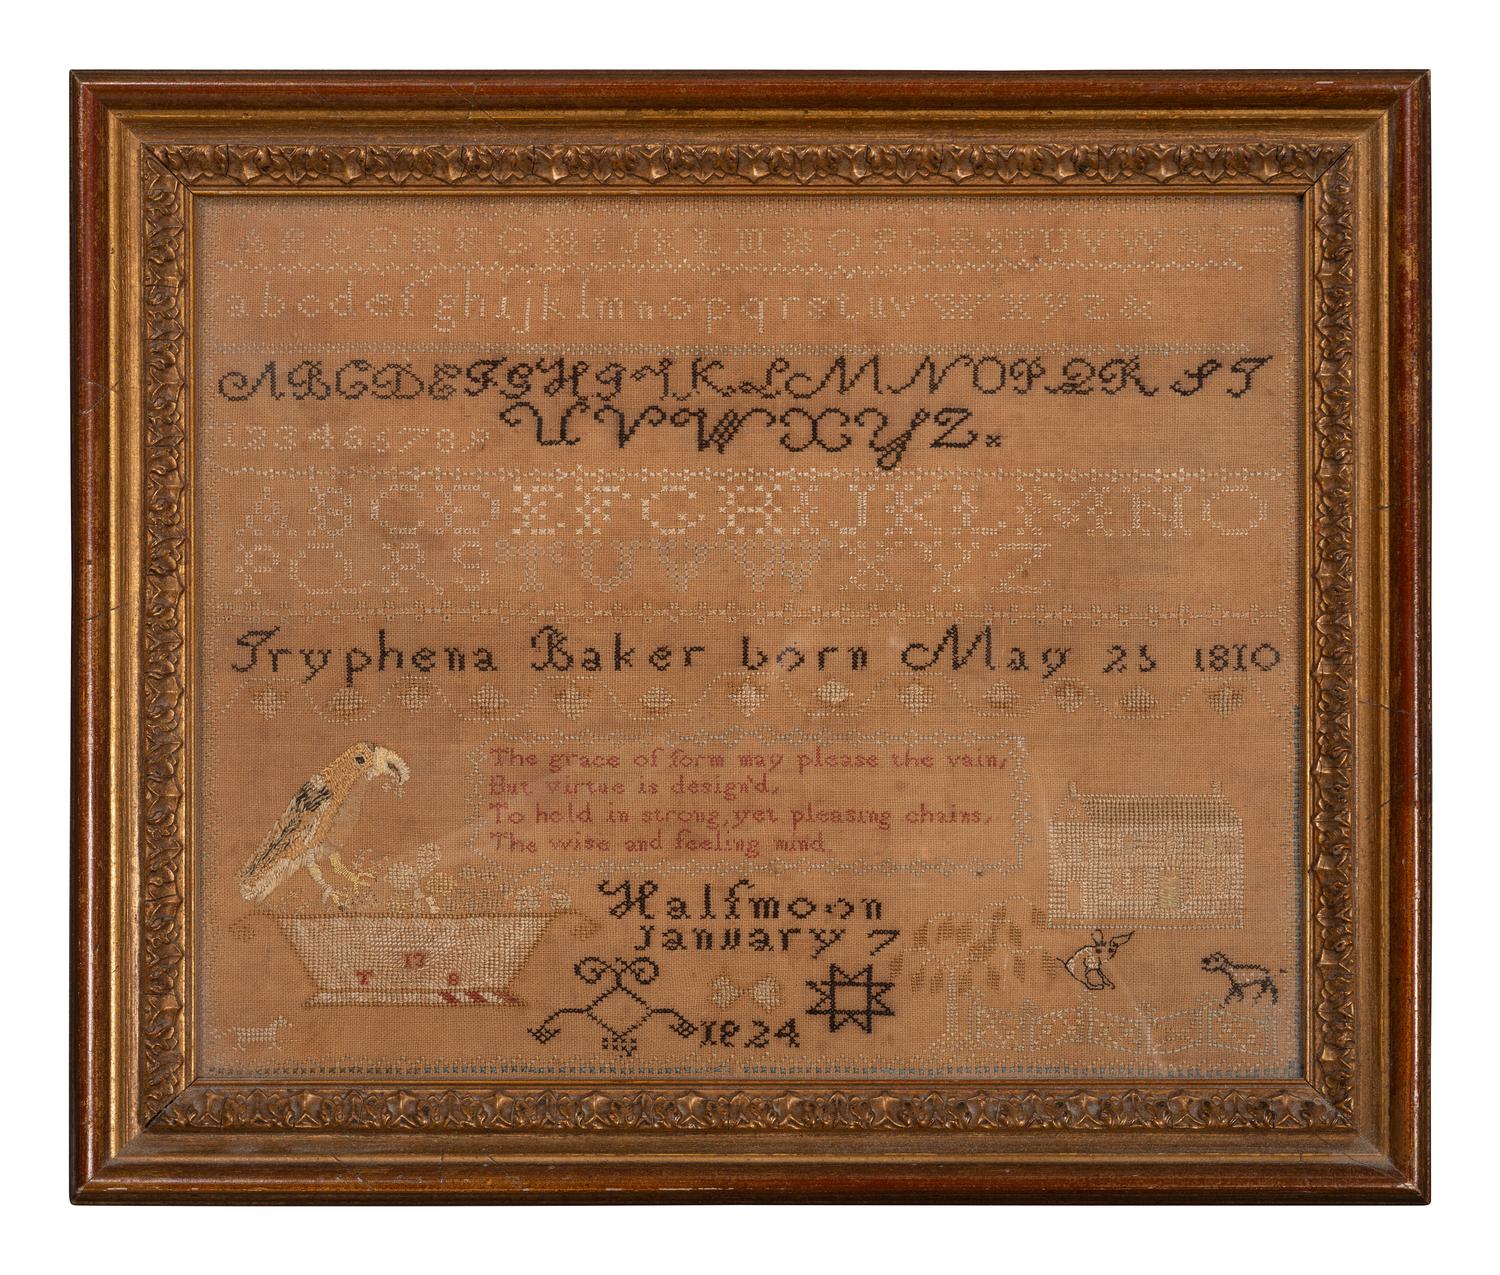 A B C D E F G H I J K L M N O P Q R S T U V W X Y Z
a b c d e f g h i j k l m n o p q r s t u v w x y z &
A B C D E F G H I J K L M N O P Q R S T
U V W X Y Z
1 2 3 4 5 6 7 8 9
A B C D E F G H I J K L M N O
P Q R S T U V W X Y Z
Tryphena Baker born May 25 1810
The grace of form may please the vain,
But virtue is design'd,
To hold in strong, yet pleasing chains,
The wise and feeling mind.
Halfmoon
January 7
1824
13
T 8